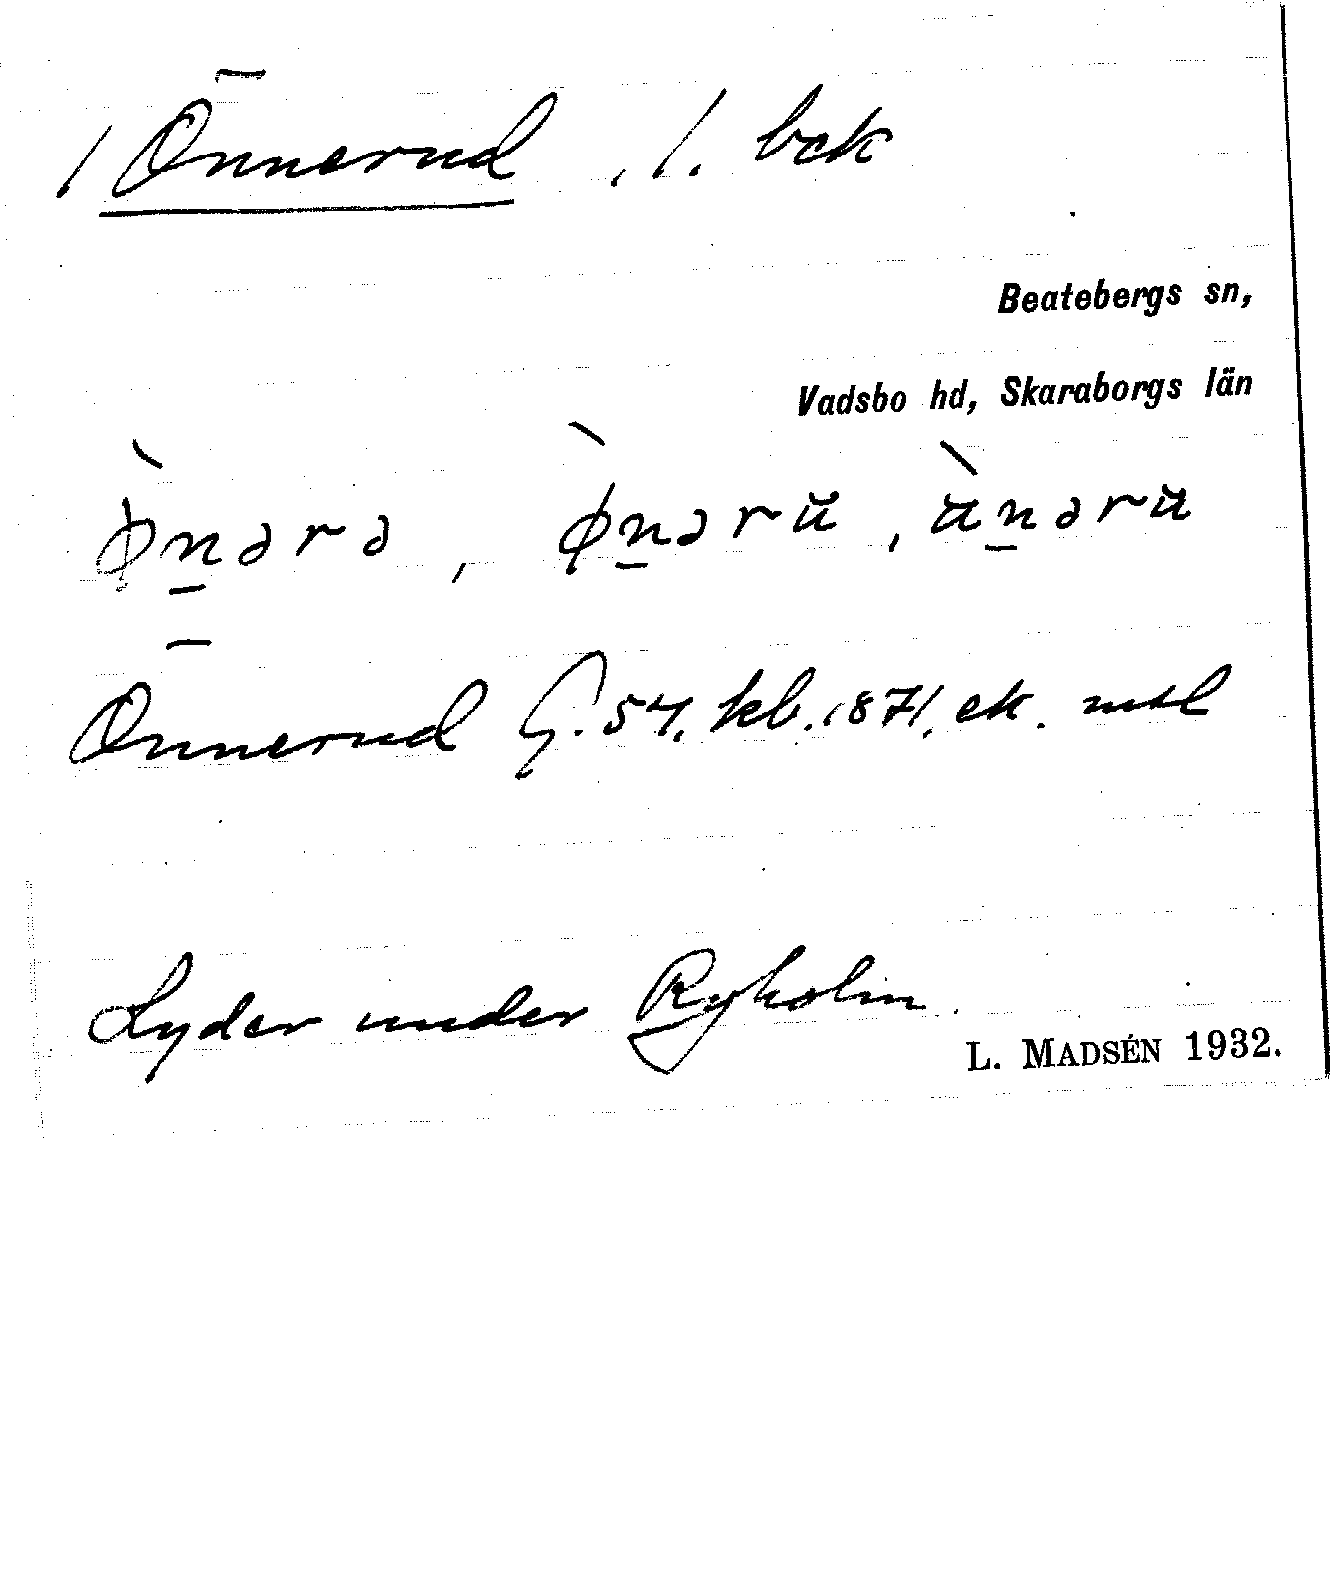 / Önnerud, /. bck
Beatebergs sn,
Vadsbo hd, Skaraborgs län
ø̀n̲ərə, ø̀n̲ərŭ, ŭ̀n̲ərŭ
Önnerud G. 54, kb. 1871, ek. mtl
Lyder under Ryholm.
L. MADSÉN 1932.